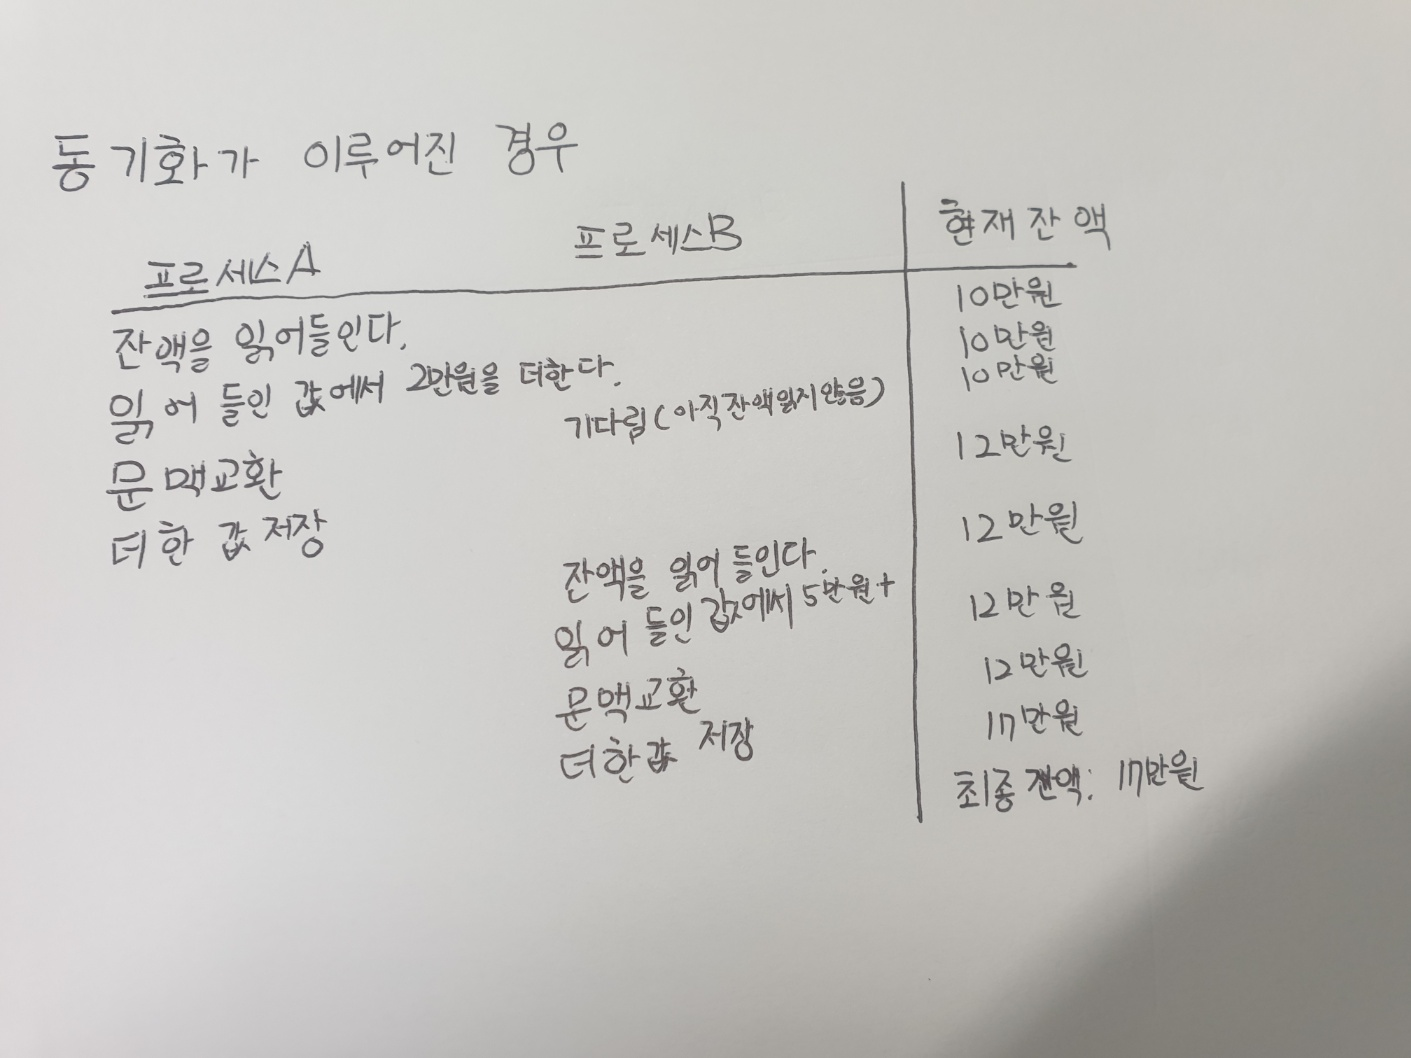 동기화가 이루어진 경우
프로세스A 프로세스B 현재 잔액
잔액을 읽어들인다. 10만원
읽어 들인 값에서 2만원을 더한다. 10만원
기다림(아직 잔액 읽지 않음) 10만원
문맥교환 12만원
더한 값 저장 12만원
잔액을 읽어 들인다. 12만원
읽어 들인 값에서 5만원+ 12만원
문맥교환 17만원
더한 값 저장
최종 잔액: 17만원